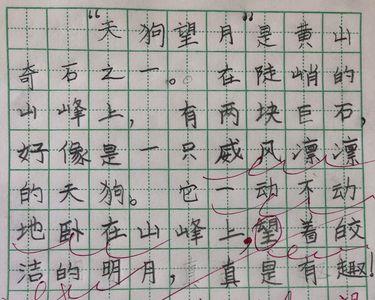 “天狗望月”是黄山
奇石之一。在陡峭的
山峰上，有两块巨石，
好像是一只威风凛凛
的天狗。它一动不动
地卧在山峰上，望着皎
洁的明月，真是有趣！